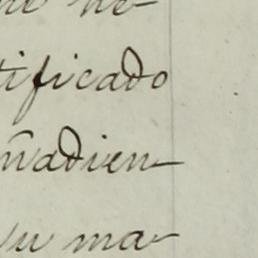 ne he-
tificado
ñadien-
su ma-